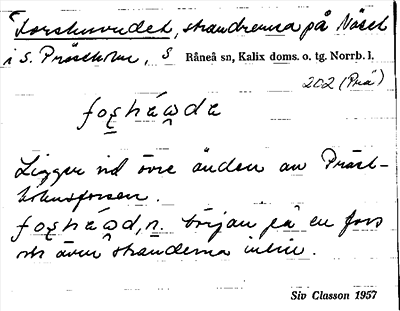 Forshuvudet, strandremsa på Näset
i S. Prästholm, S Råneå sn, Kalix doms. o. tg. Norrb. l.
202 (Prä)
Ligger vid övre änden av Präst-
holmsforsen.
början på en fors
och även stränderna intill.
Siv Classon 1957